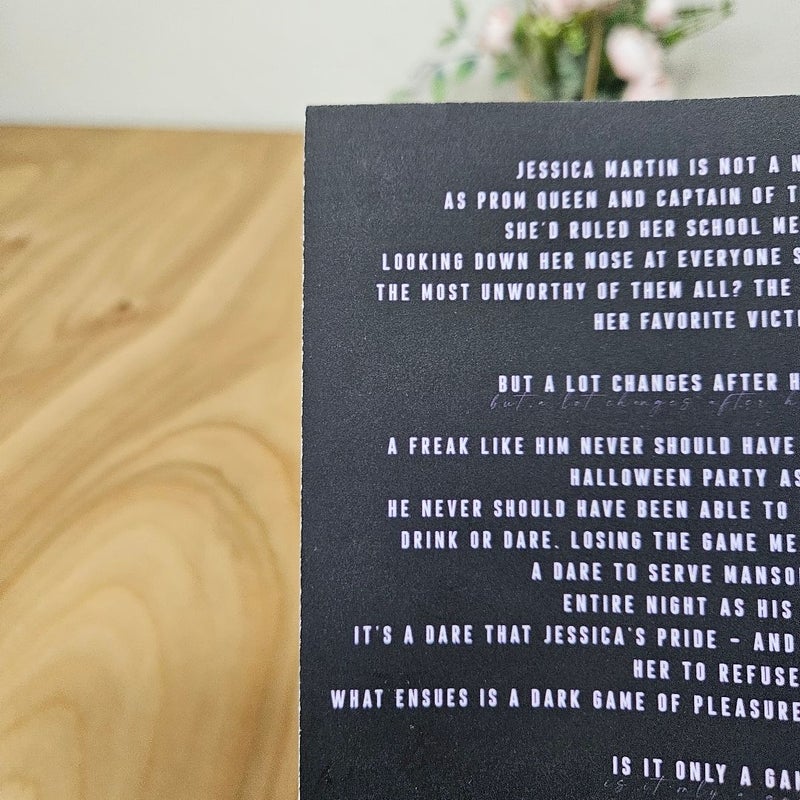 JESSICA MARTIN IS NOT A N
AS PROM QUEEN AND CAPTAIN OF T
SHE'D RULED HER SCHOOL ME
LOOKING DOWN HER NOSE AT EVERYONE S
THE MOST UNWORTHY OF THEM ALL? THE
HER FAVORITE VICTI
BUT A LOT CHANGES AFTER H
but a lot changes after h
A FREAK LIKE HIM NEVER SHOULD HAVE
HALLOWEEN PARTY AS
HE NEVER SHOULD HAVE BEEN ABLE TO
DRINK OR DARE. LOSING THE GAME ME
A DARE TO SERVE MANSO
ENTIRE NIGHT AS HIS
IT'S A DARE THAT JESSICA'S PRIDE - AND
HER TO REFUSE
WHAT ENSUES IS A DARK GAME OF PLEASURE
IS IT ONLY A GA
is it only a ga